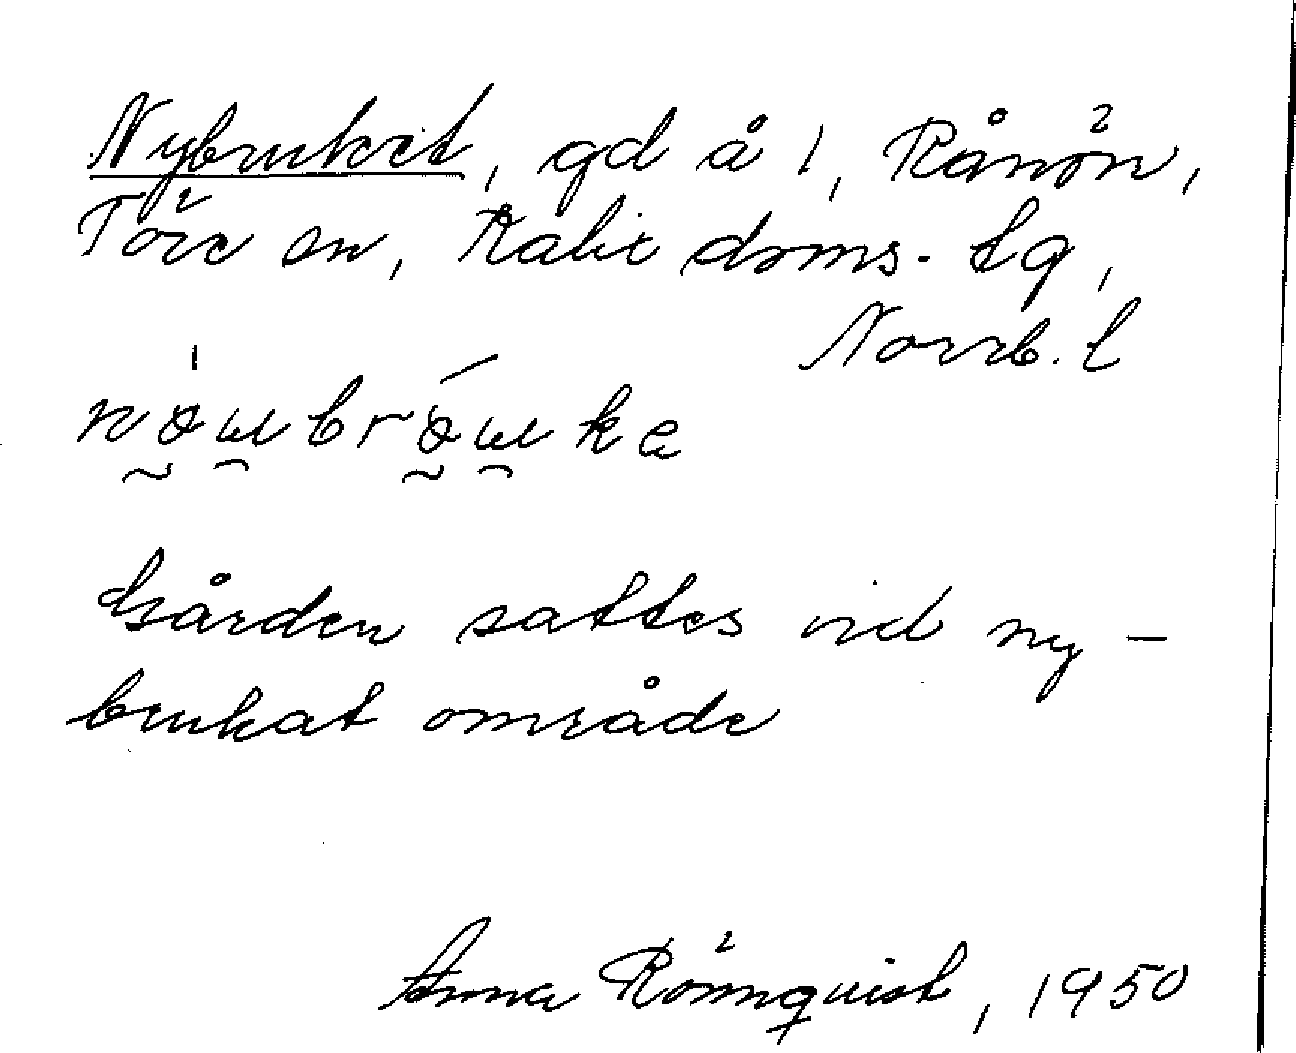 Nybruket, gd å 1, Rånön,
Töre sn, Kalix doms. tg,
Norrb. l
Gården sattes vid ny-
brukat område
Anna Rönnquist, 1950